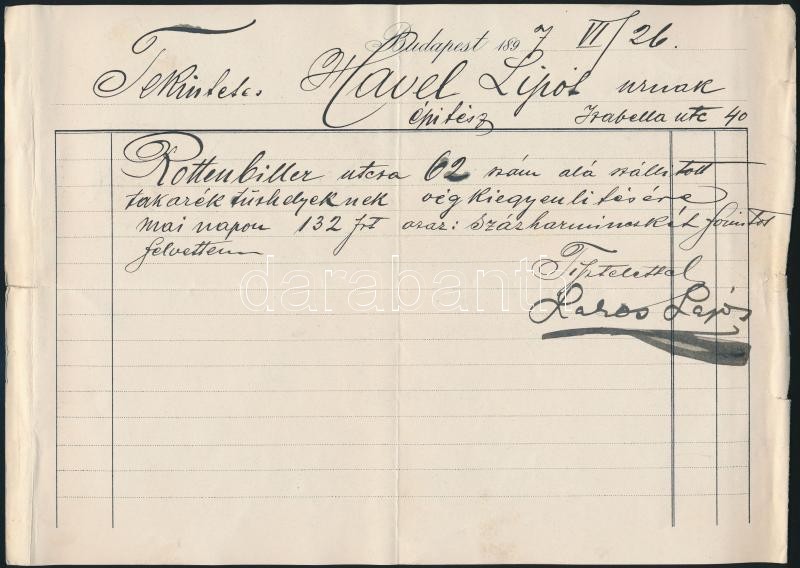 Budapest 1897 VI/26.
Tekintetes Havel Lipót urnak
építész Izabella utc 40
Rottenbiller utcsa 62 szám alá szállitott
takarék tüzhelyeknek végkiegyenlitésére
mai napon 132 frt azaz: Százharminczkét forintot
felvettem
Tisztelettel
Lajos
darabanth